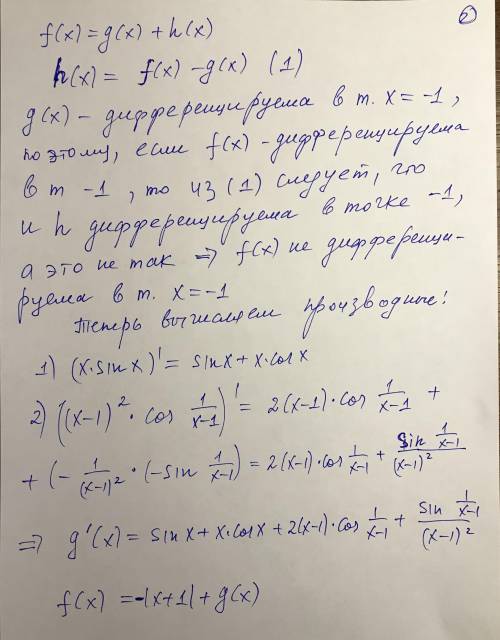 2
f(x) = g(x) + h(x)
h(x) = f(x) - g(x) (1)
g(x) - дифференцируема в т. x = -1,
поэтому, если f(x) - дифференцируема
в т -1, то из (1) следует, что
и h дифференцируема в точке -1,
а это не так ⇒ f(x) не дифференци-
руема в т. x = -1
Теперь вычисляем производные:
1) (x·sin x)' = sin x + x·cos x
2) ((x-1)²·cos 1/(x-1))' = 2(x-1)·cos 1/(x-1) +
+ (- 1/(x-1)²·(-sin 1/(x-1)) = 2(x-1)·cos 1/(x-1) + sin 1/(x-1) / (x-1)²
⇒ g'(x) = sin x + x·cos x + 2(x-1)·cos 1/(x-1) + sin 1/(x-1) / (x-1)²
f(x) = -|x+1| + g(x)